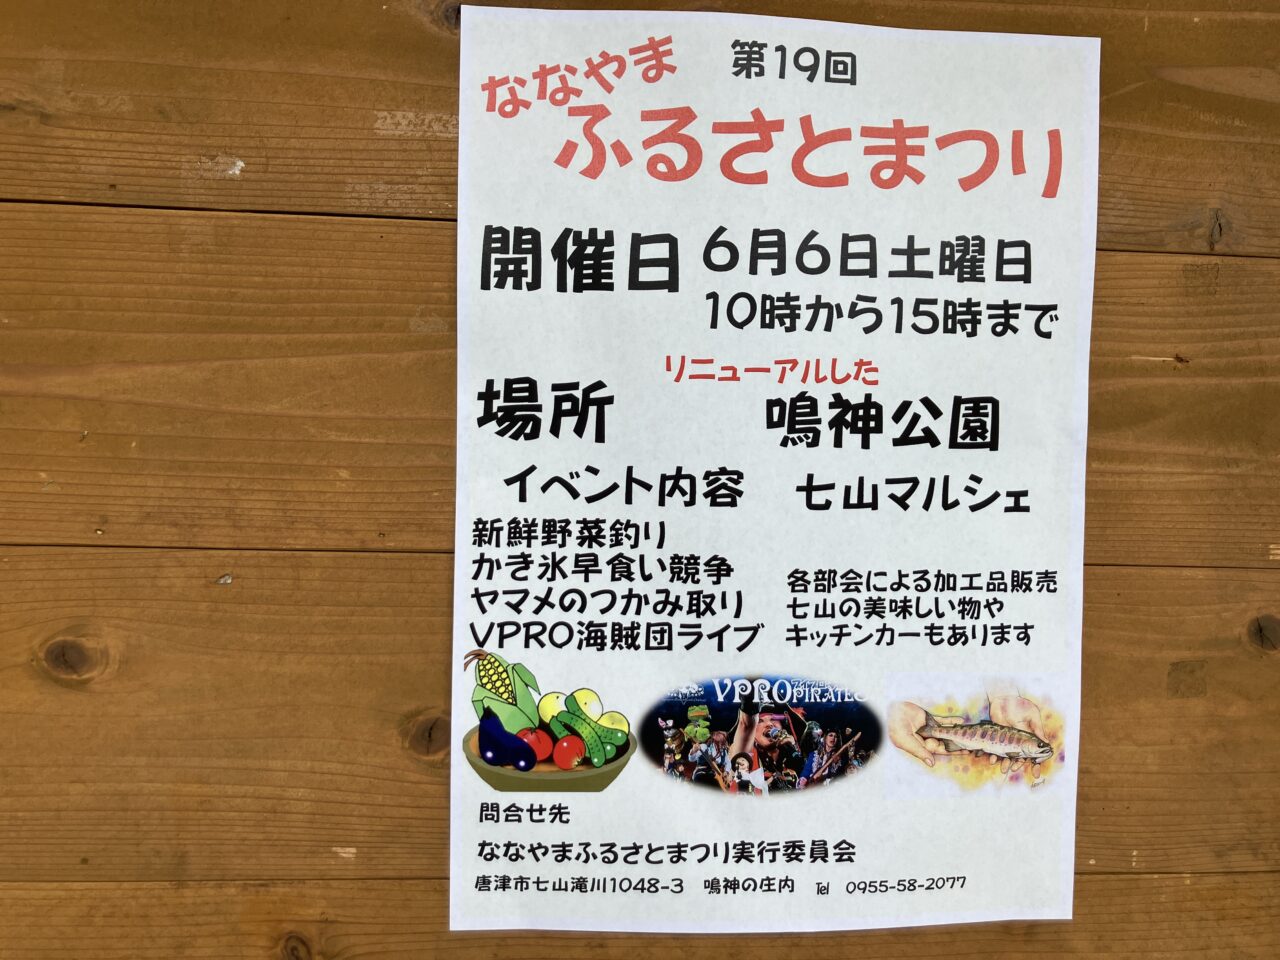 第19回
ななやま
ふるさとまつり
開催日 6月6日土曜日
10時から15時まで
リニューアルした
場所 鳴神公園
イベント内容
新鮮野菜釣り
かき氷早食い競争
ヤマメのつかみ取り
VPRO海賊団ライブ
七山マルシェ
各部会による加工品販売
七山の美味しい物や
キッチンカーもあります
VPRO
PIRATES
問合せ先
ななやまふるさとまつり実行委員会
唐津市七山滝川1048-3 鳴神の庄内 Tel 0955-58-2077